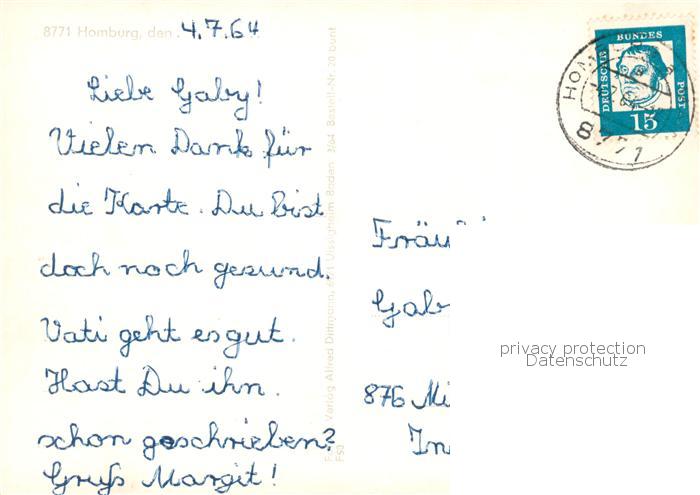 8771 Homburg, den 4.7.64
Liebe Gaby!
Vielen Dank für
die Karte. Du bist
doch noch gesund.
Vati geht es gut.
Hast Du ihn
schon geschrieben?
Gruß Margit!
Verlag Alfred Dittmann, Uissigheim Baden 3/64 Bestell-Nr. 20 bunt
DEUTSCHE BUNDES POST
15
8771
Fräu
Gab
876 Mi
In
privacy protection
Datenschutz